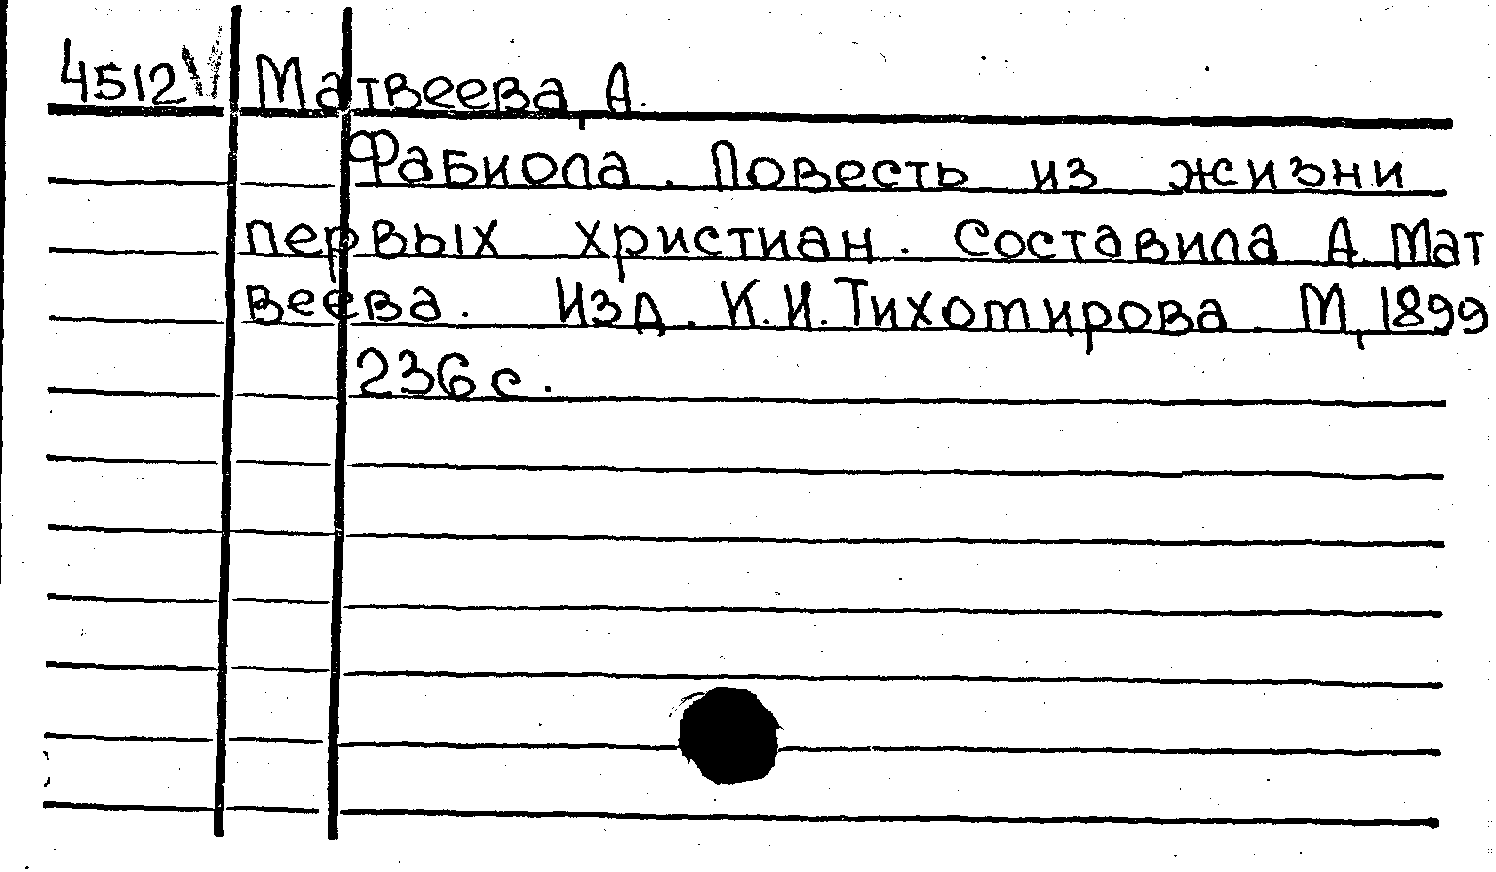 4512 V Матвеева, А.
Фабиола. Повесть из жизни
первых христиан. Составила А. Мат
веева. Изд. К.И. Тихомирова. М, 1899
236 с.